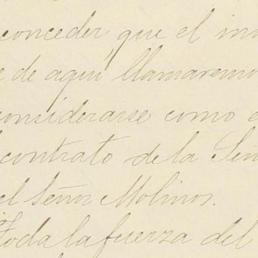 conceder que el in
e de aquí llamaremo
considerarse como e
l contrato de la Señ
el Señor Molinos.
Toda la fuerza del